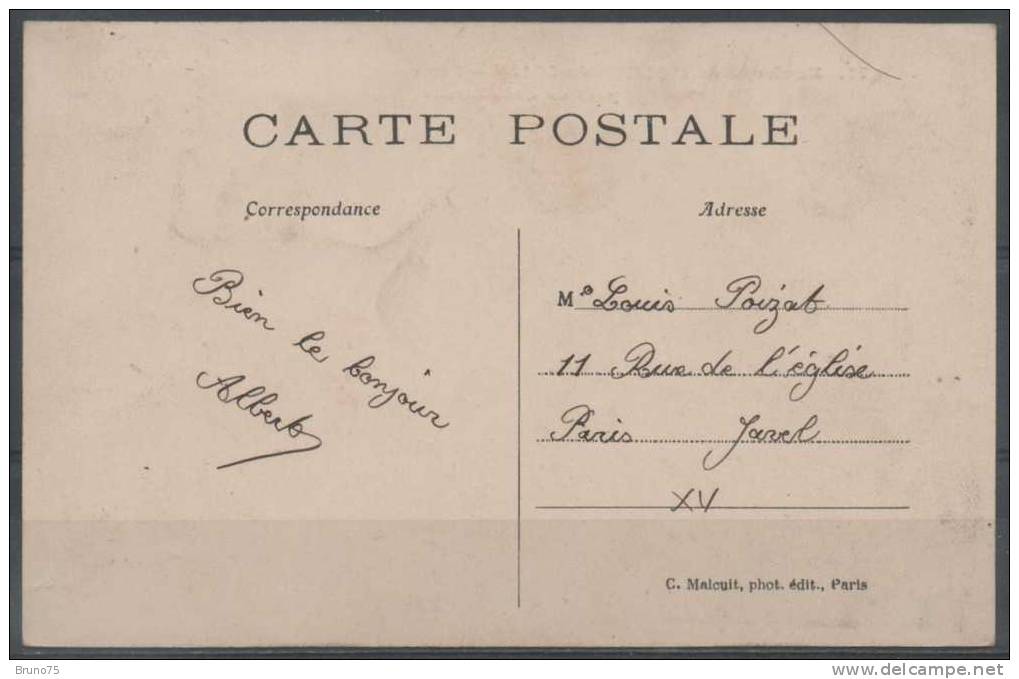 CARTE POSTALE
Correspondance
Bien le bonjour
Albert
Adresse
M. Louis Poizat
11 Rue de l'église
Paris Javel
XV
C. Malcuit, phot. édit., Paris
Bruno75
www.delcampe.net